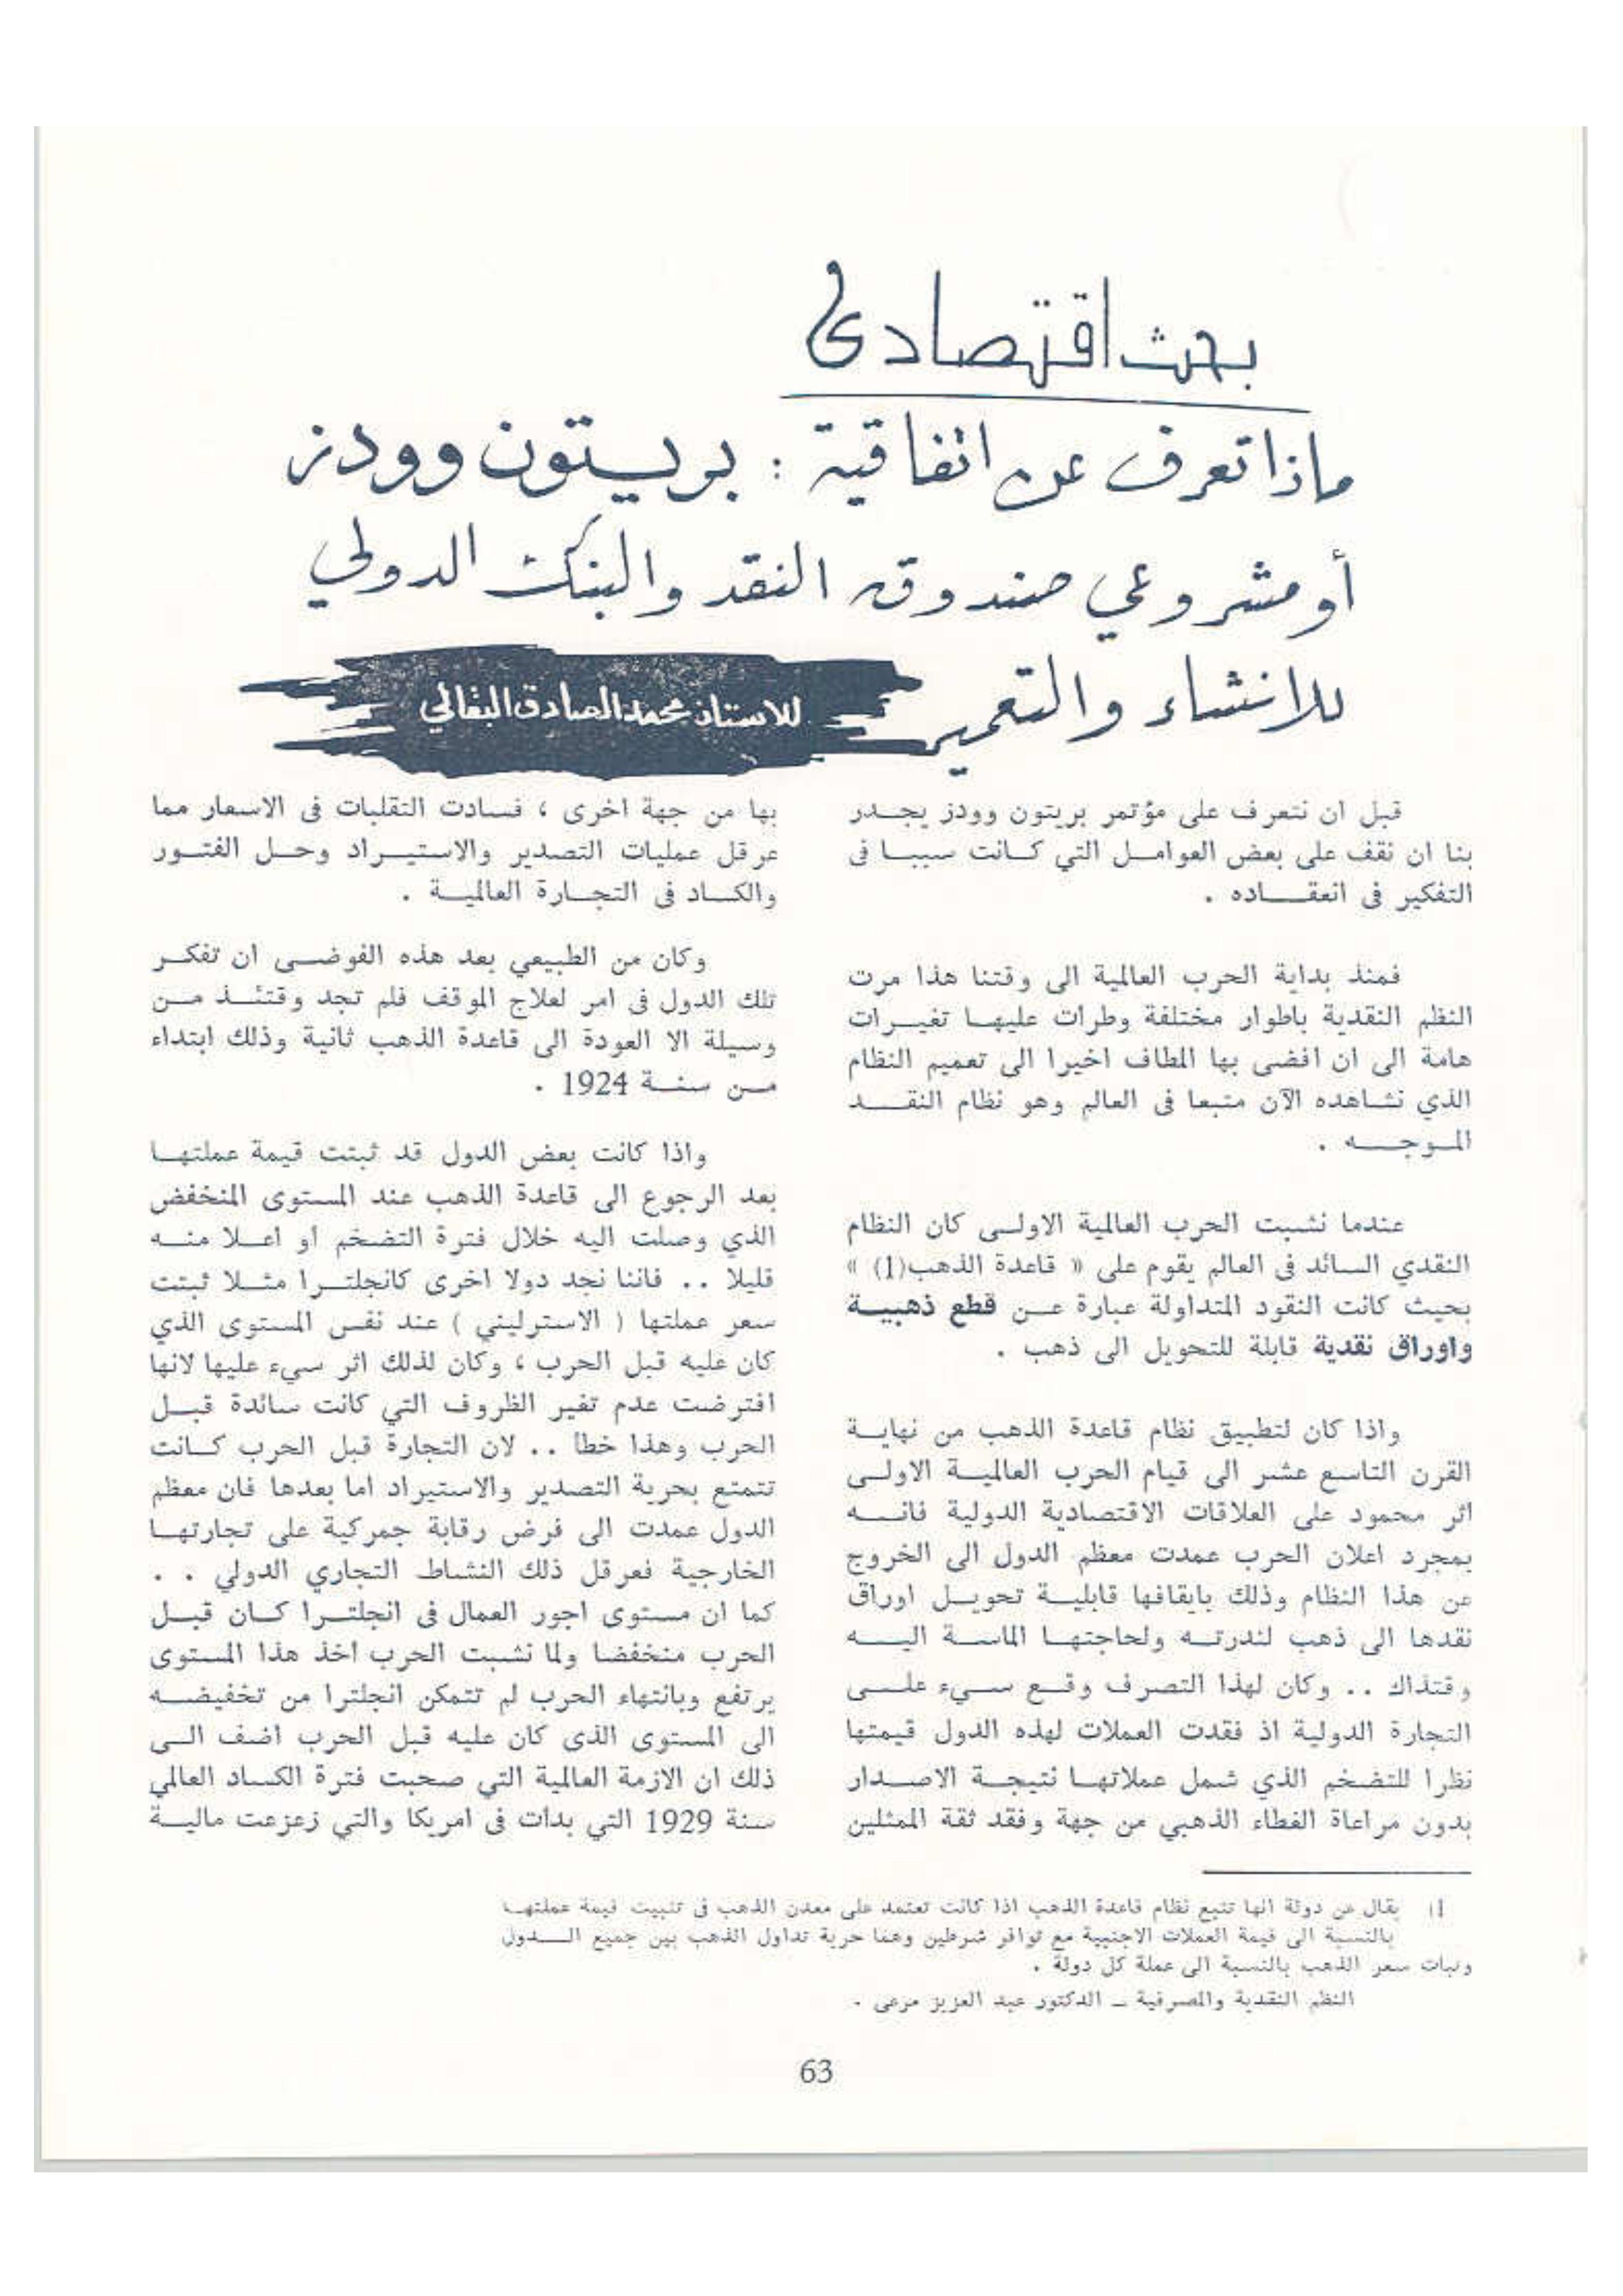 بحث اقتصادي
ماذا تعرف عن اتفاقية : بريستون وودز
أو مشروعي صندوق النقد والبنك الدولي
للانشاء والتعمير
للاستاذ محمد الصادق البقالي
قبل ان نتعرف على مؤتمر بريتون وودز يجدر
بنا ان نقف على بعض العوامل التي كانت سببا فى
التفكير فى انعقاده .
فمنذ بداية الحرب العالمية الى وقتنا هذا مرت
النظم النقدية باطوار مختلفة وطرات عليها تغيرات
هامة الى ان افضى بها المطاف اخيرا الى تعميم النظام
الذي نشاهده الآن متبعا فى العالم وهو نظام النقد
الموجه .
عندما نشبت الحرب العالمية الاولى كان النظام
النقدي السائد فى العالم يقوم على « قاعدة الذهب(1) »
بحيث كانت النقود المتداولة عبارة عن قطع ذهبية
واوراق نقدية قابلة للتحويل الى ذهب .
واذا كان لتطبيق نظام قاعدة الذهب من نهاية
القرن التاسع عشر الى قيام الحرب العالمية الاولى
اثر محمود على العلاقات الاقتصادية الدولية فانه
بمجرد اعلان الحرب عمدت معظم الدول الى الخروج
عن هذا النظام وذلك بايقافها قابلية تحويل اوراق
نقدها الى ذهب لندرته ولحاجتها الماسة اليه
وقتذاك .. وكان لهذا التصرف وقع سيء على
التجارة الدولية اذ فقدت العملات لهذه الدول قيمتها
نظرا للتضخم الذي شمل عملاتها نتيجة الاصدار
بدون مراعاة الغطاء الذهبي من جهة وفقد ثقة الممثلين
بها من جهة اخرى ، فسادت التقلبات فى الاسعار مما
عرقل عمليات التصدير والاستيراد وحل الفتور
والكساد فى التجارة العالمية .
وكان من الطبيعي بعد هذه الفوضى ان تفكر
تلك الدول فى امر لعلاج الموقف فلم تجد وقتئذ من
وسيلة الا العودة الى قاعدة الذهب ثانية وذلك ابتداء
من سنة 1924 .
واذا كانت بعض الدول قد ثبتت قيمة عملتها
بعد الرجوع الى قاعدة الذهب عند المستوى المنخفض
الذي وصلت اليه خلال فترة التضخم او اعلا منه
قليلا .. فاننا نجد دولا اخرى كانجلترا مثلا ثبتت
سعر عملتها ( الاسترليني ) عند نفس المستوى الذي
كان عليه قبل الحرب ، وكان لذلك اثر سيء عليها لانها
افترضت عدم تغير الظروف التي كانت سائدة قبل
الحرب وهذا خطا .. لان التجارة قبل الحرب كانت
تتمتع بحرية التصدير والاستيراد اما بعدها فان معظم
الدول عمدت الى فرض رقابة جمركية على تجارتها
الخارجية فعرقل ذلك النشاط التجاري الدولي . .
كما ان مستوى اجور العمال فى انجلترا كان قبل
الحرب منخفضا ولما نشبت الحرب اخذ هذا المستوى
يرتفع وبانتهاء الحرب لم تتمكن انجلترا من تخفيضه
الى المستوى الذى كان عليه قبل الحرب اضف الى
ذلك ان الازمة العالمية التي صحبت فترة الكساد العالمي
سنة 1929 التي بدات فى امريكا والتي زعزعت مالية
1) يقال عن دولة انها تتبع نظام قاعدة الذهب اذا كانت تعتمد على معدن الذهب فى تثبيت قيمة عملتها
بالنسبة الى قيمة العملات الاجنبية مع توافر شرطين وهما حرية تداول الذهب بين جميع الدول
وثبات سعر الذهب بالنسبة الى عملة كل دولة .
النظم النقدية والمصرفية ــ الدكتور عبد العزيز مرعى .
63